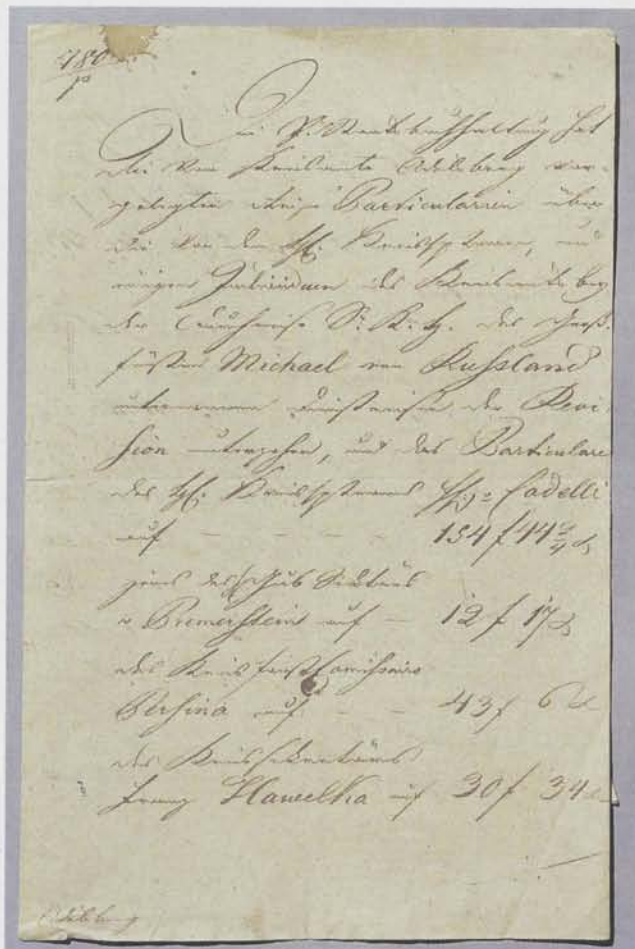 780
p
Die P. Staatsbuchhaltung hat
die vom Kreisamte Adelsberg vor-
gelegten Reise Particularien über
die von dem H. Kreishptmann, und
einigen Individuen des Kreisamts bey
der Durchreise Sr. K. H. des Groß-
fürsten Michael von Russland
unternommenen Dienstreisen der Revi-
sion unterzogen, und das Particulare
des H. Kreishptmanns Fadelli
auf – – – – 154 f 44 3/4 x
jenes des Gub
v Premerstein auf – 12 f 17 x
des Kreis Comissairs
Persina auf – – 43 f 6 x
des Kreissekretärs
Franz Hawelka auf 30 f 34 x
Adelsberg